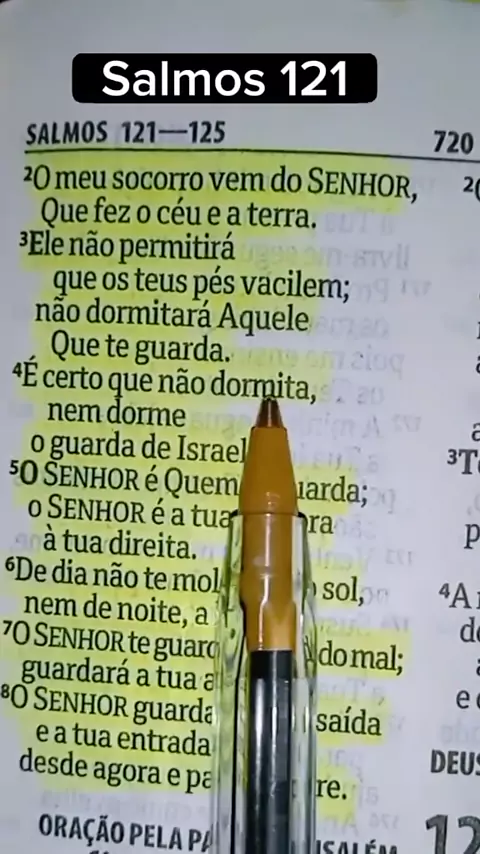 Salmos 121
SALMOS 121—125
720
²O meu socorro vem do SENHOR,
Que fez o céu e a terra.
³Ele não permitirá
que os teus pés vacilem;
não dormitará Aquele
Que te guarda.
⁴É certo que não dormita,
nem dorme
o guarda de Israel
⁵O SENHOR é Quem uarda;
o SENHOR é a tua ra
à tua direita.
⁶De dia não te mol sol,
nem de noite, a
⁷O SENHOR te guard do mal;
guardará a tua a
⁸O SENHOR guarda saída
e a tua entrada
desde agora e pa re.
ORAÇÃO PELA PA USALÉM
³T
⁴A
d
e
DEUS
12